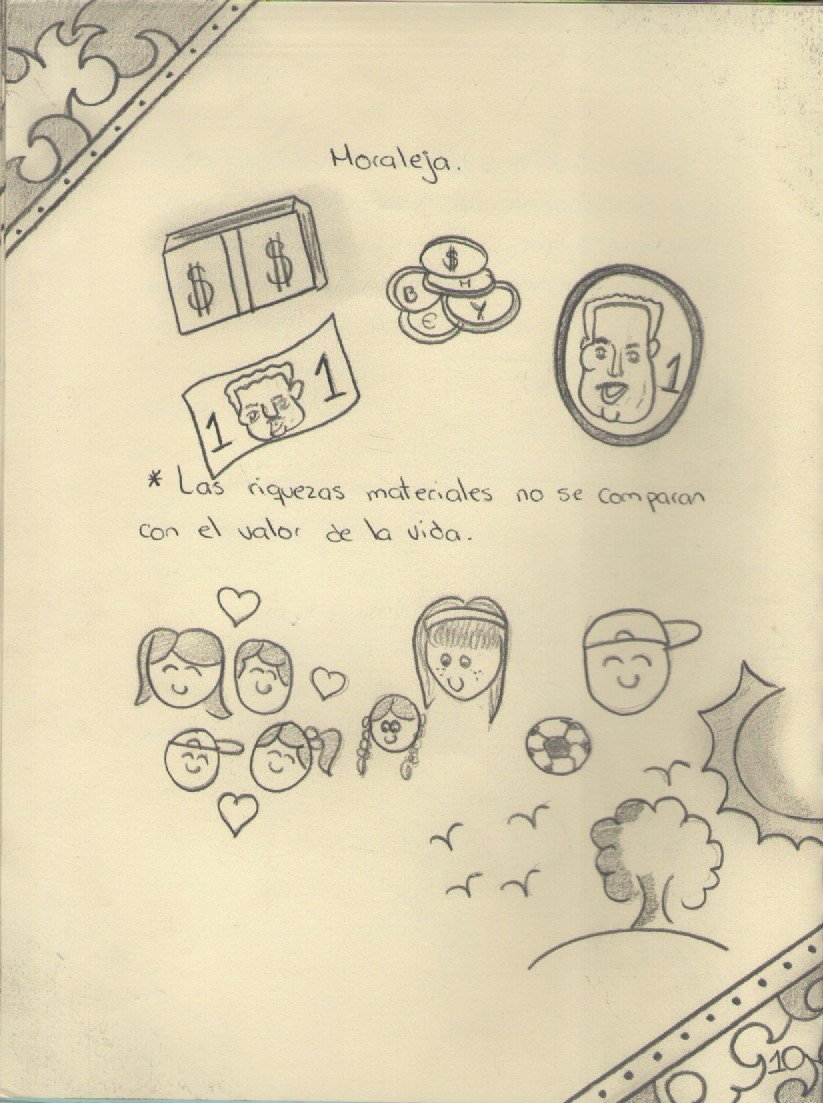 Moraleja.
$ $
$
B M
€ Y
1 1
1
* Las riquezas materiales no se comparan
con el valor de la vida.
10